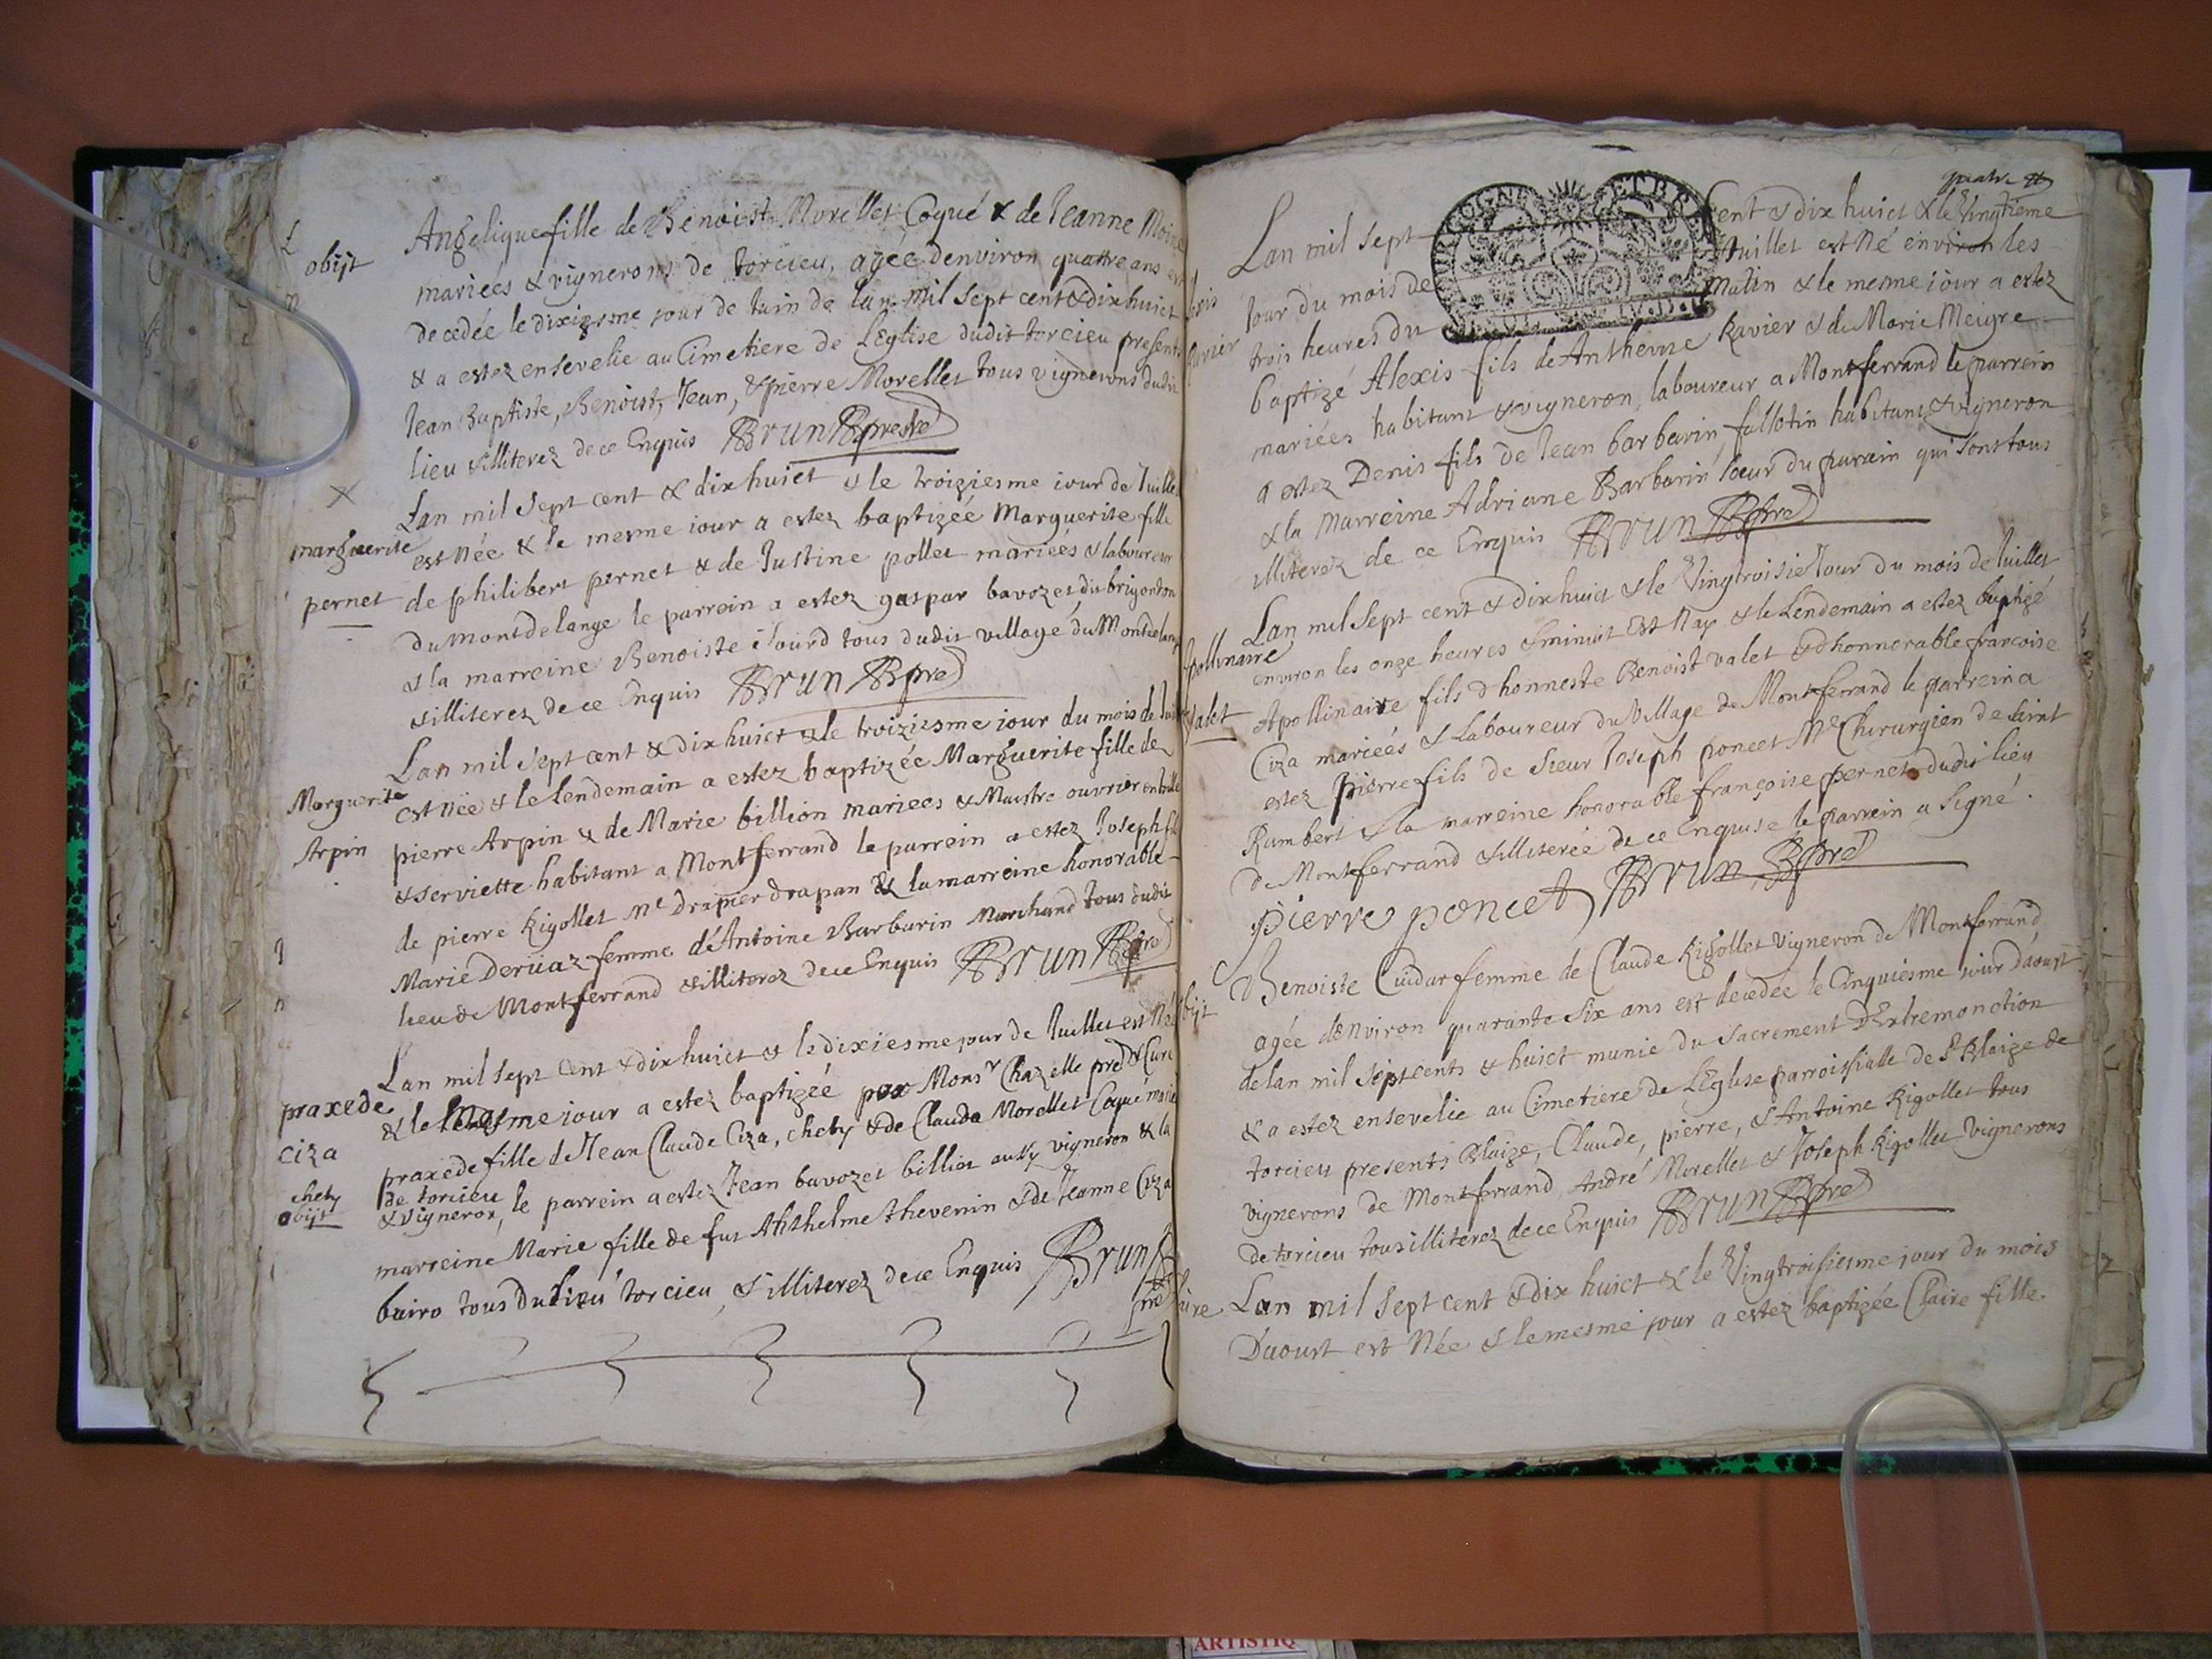 obijt
Angelique fille de Benoist Morellet Coqué & de Jeanne Moine
mariées & vignerons de torcieu, agée denviron quattre ans est
decedée le dixiesme jour de Juin de lan mil sept cent & dix huict
& a estez ensevelie au Cimetiere de Leglise dudit torcieu presents
Jean Baptiste, Benoist, Jean, & pierre Morellet tous vignerons dudit
lieu & illiterez de ce Enquis Brun prestre
marguerite
pernet
Lan mil sept cent & dix huict & le troiziesme iour de Juillet
est Née & le mesme iour a estez baptizée Marguerite fille
de philibert pernet & de Justine pollet mariées & laboureur
du montdelange le parrein a estez gaspar bavozet du brigondon
& la marreine Benoiste tous dudit village du Montdelange
& illiterez de ce Enquis Brun pre
Marguerite
Arpin
Lan mil sept cent & dix huict & le troiziesme iour du mois de Juillet
est Née & le lendemain a estez baptizée Marguerite fille de
pierre Arpin & de Marie billion mariees & Maistre ouvrier en toille
& serviette habitant a Montferrand le parrein a estez Joseph fils
de pierre Rigollet Me Drapier drapan & la marreine honorable
Marie Deruaz femme d'Antoine Barbarin Marchand tous dudit
lieu de Montferrand & illiterez de ce Enquis Brun pre
praxede
ciza
chety
obijt
Lan mil sept cent & dix huict & le dixiesme jour de Juillet est Née
& le mesme iour a estez baptizée par Monsr Chazelle pre & Curé
praxede fille de Jean Claude Ciza, chety & de Clauda Morellet Coqué mariés
de torcieu
& vigneron, le parrein a estez Jean bavozet billiot aussy vigneron & la
marreine Marie fille de fut Anthelme thevenin & de Jeanne Ciza
bairo tous du lieu torcieu, & illiterez de ce Enquis Brun
pre
quatre
Lan mil sept cent & dix huict & le Vingtieme
Jour du mois de Juillet est Né environ les
trois heures du Matin & le mesme iour a estez
baptizé Alexis fils de Anthelme Ravier & de Marie Meigre
mariées habitant & vigneron, laboureur a Montferrand le parrein
a estez Denis fils de Jean barbarin, fallotin habitant & vigneron
& la Marreine Adriane Barbarin soeur du parrain qui sont tous
illiterez de ce Enquis Brun pre
Apollinaire
valet
Lan mil sept cent & dix huict & le Vingtroisie Jour du mois de Juillet
environ les onze heures & minuit Est Nay & le Lendemain a estez baptizé
Apollinaire fils d honneste Benoist valet & d honnorable francoise
Ciza mariées & Laboureur du Village de Montferrand le parrein a
estez pierre fils de sieur Joseph poncet Me Chirurgien de saint
Rambert & la marreine honorable françoise pernet dudit lieu
de Montferrand & illiterée de ce Enquise le parrein a signé.
pierre poncet Brun pre
obijt
Benoiste Cuidar femme de Claude Rigollet Vigneron de Montferrand
agée denviron quarante six ans est decedée le Cinquiesme iour d'aoust
de lan mil sept cents & huict munie du sacrement DExtremonction
& a estez ensevelie au Cimetiere de LEglise parroissialle de St Blaize de
torcieu presents Blaize, Claude, pierre, & Antoine Rigollet tous
vignerons de Montferrand, André Morellet & Joseph Rigollet Vignerons
de torcieu tous illiterez de ce Enquis Brun pre
Lan mil sept cent & dix huict & le Vingtroisiesme jour du mois
Daoust est Née & le mesme jour a estez baptizée Claire fille
ARTISTIQ